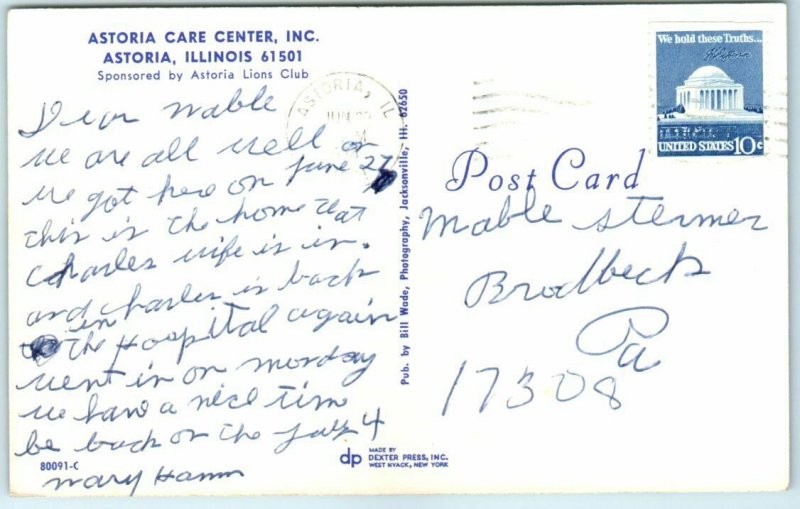 ASTORIA CARE CENTER, INC.
ASTORIA, ILLINOIS 61501
Sponsored by Astoria Lions Club
ASTORIA, IL
JUN
Dear Mable
we are all well on
we got here on June 27
this is the home that
Charles wife is in.
and Charles is back
in
the Hospital again
went in on monday
we have a nice time
be back on the July 4
Mary Hamm
80091-C
Pub. by Bill Wade, Photography, Jacksonville, Ill. 62650
dp
MADE BY
DEXTER PRESS, INC.
WEST NYACK, NEW YORK
We hold these Truths...
UNITED STATES 10c
Post Card
Mable Stermer
Brodbecks
Pa
17308